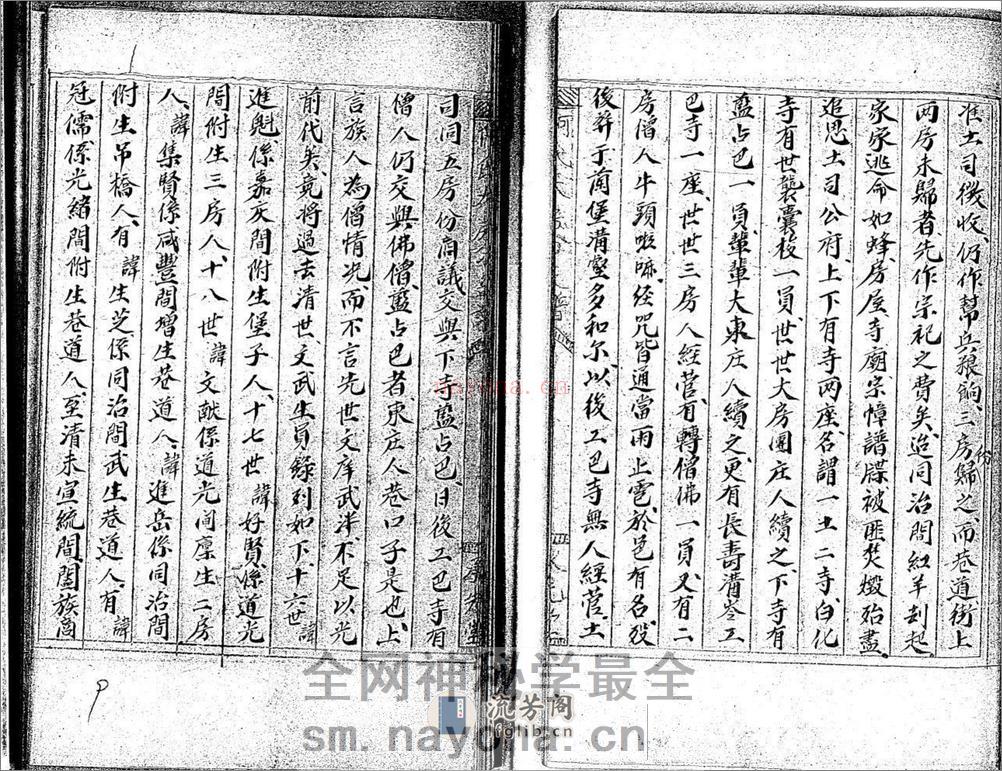 准土司徵收仍作幫兵粮餉三房份歸之而巷道街上
两房未歸者先作宗祀之費矣迨同治間紅羊刦起
家家逃命如蜂房屋寺廟宗幛譜牒被匪焚燬殆盡
追思土司公府上下有寺两座名謂一土二寺白化
寺有世襲囊校一員世世大房圈庄人續之下寺有
盔占巴一員輩輩大東庄人續之更有長壽溝岺工
巴寺一座世世三房人經营有轉僧佛一員又有二
房僧人牛頭喇嘛經咒皆通當雨止雹於邑有名殁
後葬于蘭堡溝壑多和尔以後工巴寺無人經营土
司洞五房份商議交與下寺盔占巴日後工巴寺有
僧人仍交與佛僧盔占巴者東庄人巷口子是也上
言族人為僧情况而不言先世文庠武泮不足以光
前代矣竟將過去清世文武生員錄列如下十六世諱
進魁係嘉庆間附生堡子人十七世諱好賢係道光
間附生三房人十八世諱文献係道光间廪生二房
人諱集賢係咸豐間增生巷道人諱進岳係同治間
附生吊橋人有諱生芝係同治間武生巷道人有諱
冠儒係光緒間附生巷道人至清末宣統間闔族商
nayona.cn
全网神秘学最全
流芳阁
fglib.cn
sm.nayona.cn